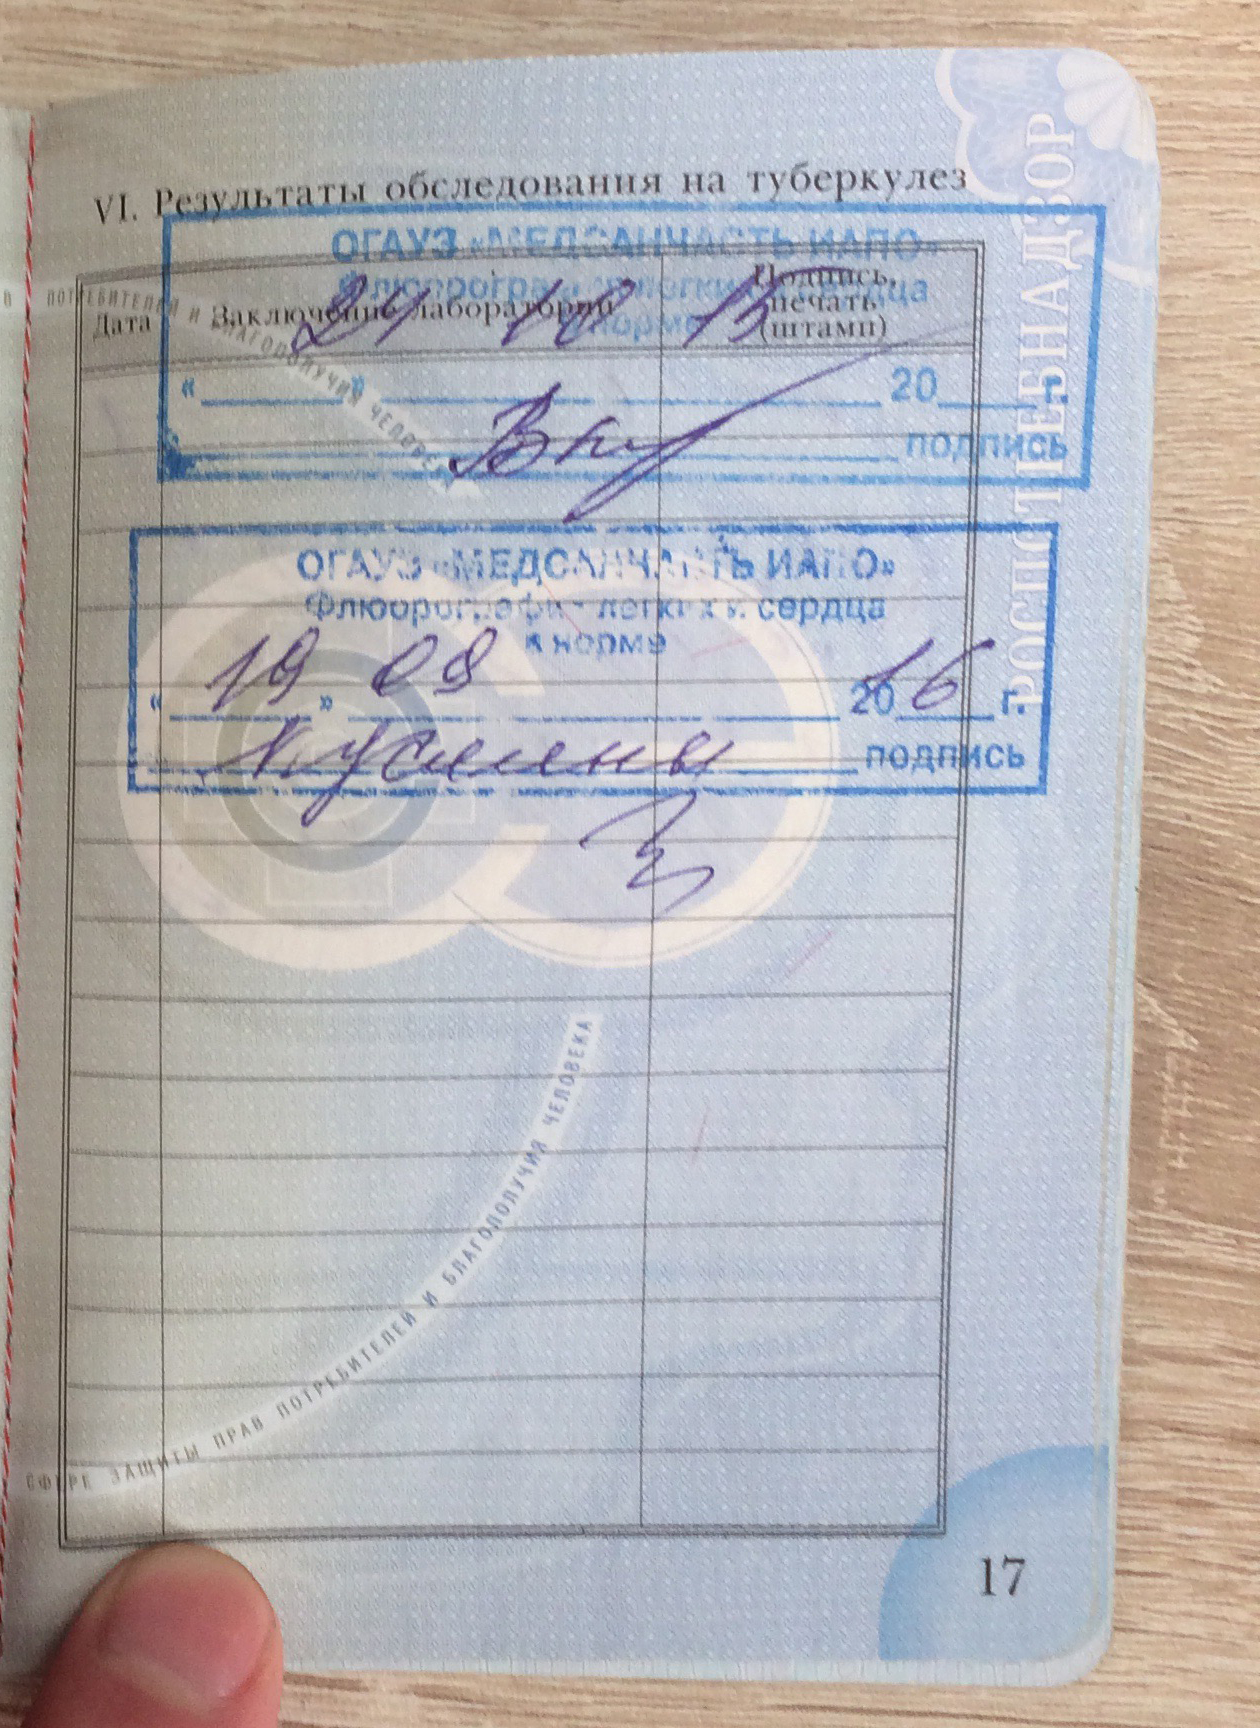 VI. Результаты обследования на туберкулез
ОГАУЗ «МЕДСАНЧАСТЬ ИАПО»
Флюорография легких и сердца
в норме
Дата
Заключение лаборатории
Подпись,
печать
(штамп)
« » 20 г.
подпись
ОГАУЗ «МЕДСАНЧАСТЬ ИАПО»
Флюорография легких и сердца
в норме
« 19 » 08 2016 г.
подпись
ПОТРЕБИТЕЛЕЙ И БЛАГОПОЛУЧИЯ ЧЕЛОВЕКА
СФЕРЕ ЗАЩИТЫ ПРАВ ПОТРЕБИТЕЛЕЙ И БЛАГОПОЛУЧИЯ ЧЕЛОВЕКА
РОСПОТРЕБНАДЗОР
17